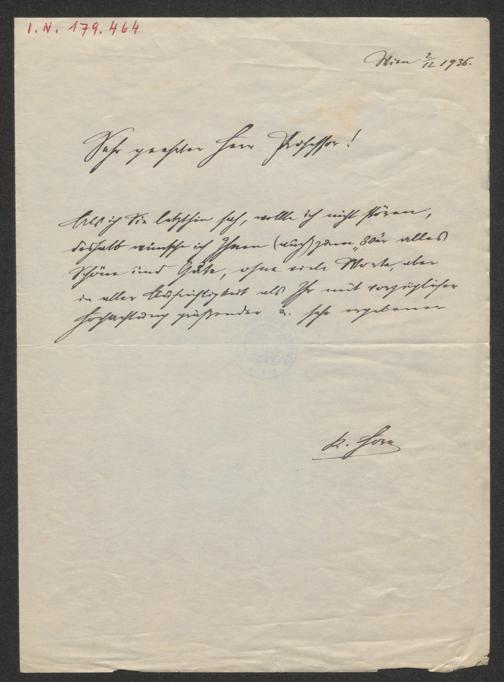 I. N. 179.464
Wien 2/12 1936.
Sehr geehrter Herr Professor!
Als ich Sie letzthin sah, wollte ich nicht stören,
deshalb wünsche ich Ihnen (auch) zum „80er" alles
Schöne und Gute, ohne viele Worte, aber
in aller Aufrichtigkeit als Ihr mit vorzüglicher
Hochachtung grüßender u. sehr ergebener
K.